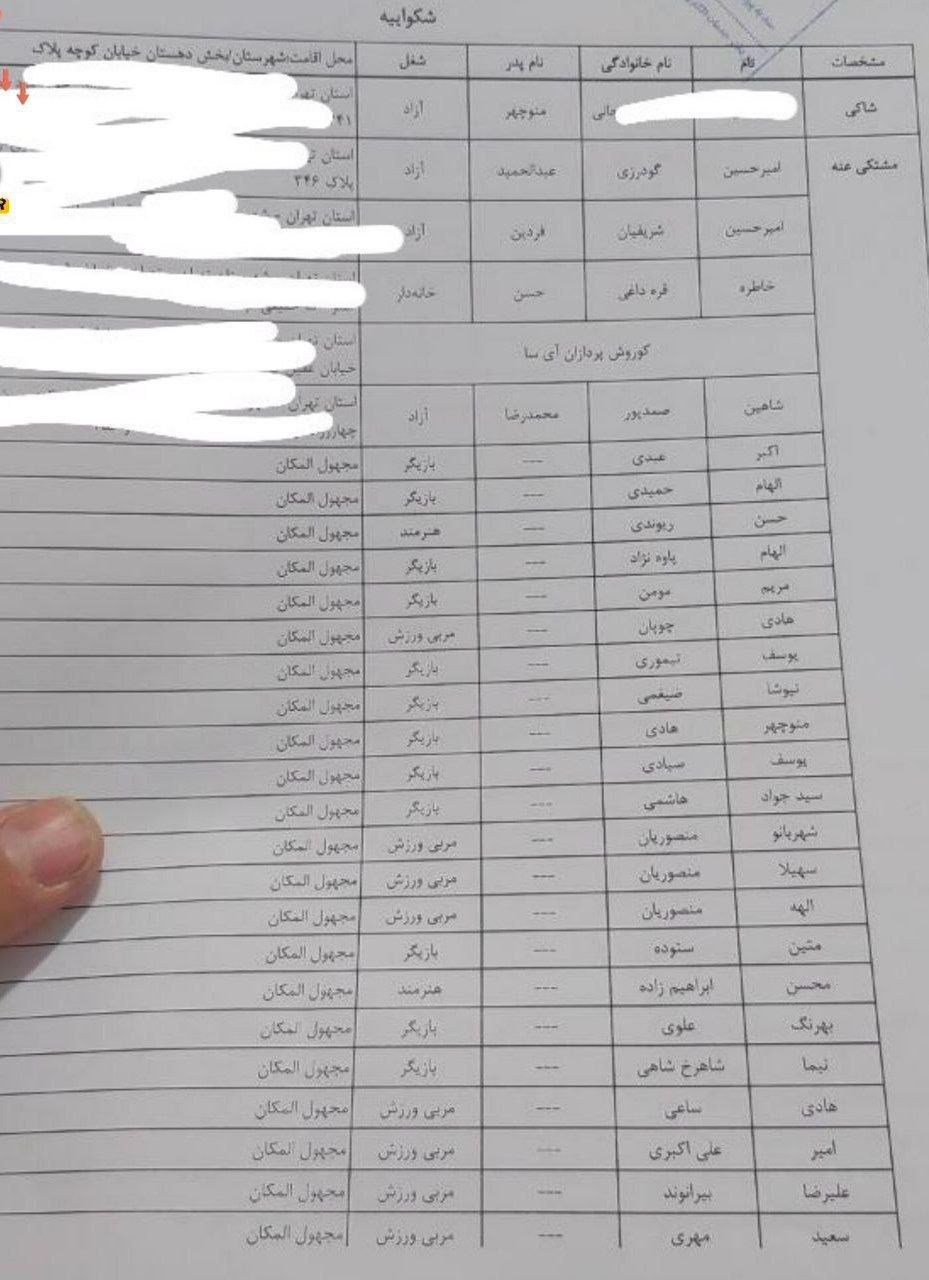 شکواییه
مشخصات نام نام خانوادگی نام پدر شغل محل اقامت:شهرستان/بخش دهستان خیابان کوچه پلاک
شاکی جانی منوچهر آزاد استان
۴۱
مشتکی عنه امیرحسین گودرزی عبدالحمید آزاد استان
پلاک ۳۴۶
امیرحسین شریفیان فردین آزاد استان تهران
خاطره قره داغی حسن خانه‌دار
کوروش پردازان آی سا استان
خیابان
شاهین صمدپور محمدرضا آزاد استان تهران
اکبر عبدی --- بازیگر مجهول المکان
الهام حمیدی --- بازیگر مجهول المکان
حسن ریوندی --- هنرمند مجهول المکان
الهام پاوه نژاد --- بازیگر مجهول المکان
مریم مومن --- بازیگر مجهول المکان
هادی چوپان --- مربی ورزش مجهول المکان
یوسف تیموری --- بازیگر مجهول المکان
نیوشا ضیغمی --- بازیگر مجهول المکان
منوچهر هادی --- بازیگر مجهول المکان
یوسف صیادی --- بازیگر مجهول المکان
سید جواد هاشمی --- بازیگر مجهول المکان
شهربانو منصوریان --- مربی ورزش مجهول المکان
سهیلا منصوریان --- مربی ورزش مجهول المکان
الهه منصوریان --- مربی ورزش مجهول المکان
متین ستوده --- بازیگر مجهول المکان
محسن ابراهیم زاده --- هنرمند مجهول المکان
بهرنگ علوی --- بازیگر مجهول المکان
نیما شاهرخ شاهی --- بازیگر مجهول المکان
هادی ساعی --- مربی ورزش مجهول المکان
امیر علی اکبری --- مربی ورزش مجهول المکان
علیرضا بیرانوند --- مربی ورزش مجهول المکان
سعید مهری --- مربی ورزش مجهول المکان